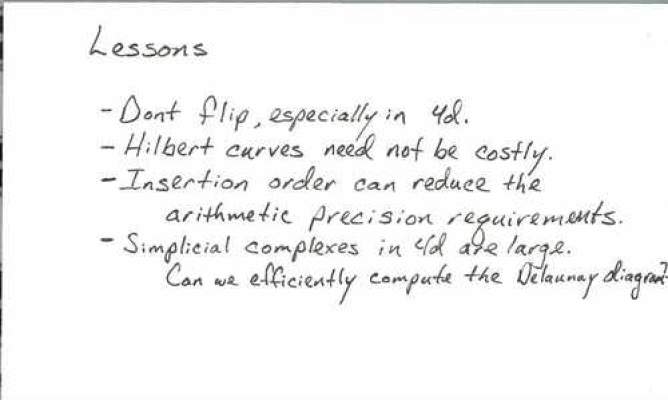 Lessons
- Dont flip, especially in 4d.
- Hilbert curves need not be costly.
- Insertion order can reduce the
arithmetic precision requirements.
- Simplicial complexes in 4d are large.
Can we efficiently compute the Delaunay diagram?